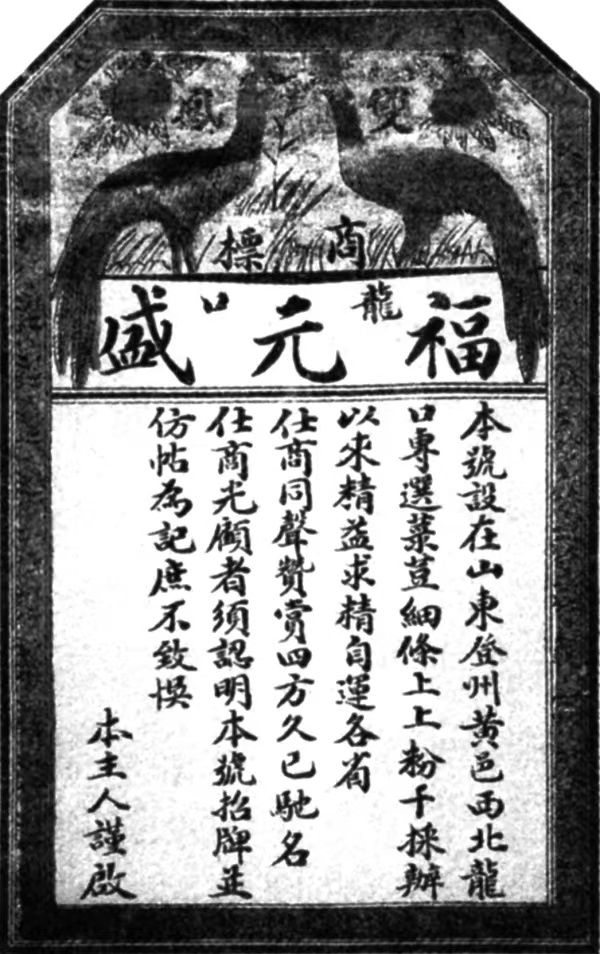 雙鳳
商標
龍口
福元盛
本號設在山東登州黄邑西北龍
口專選菉荳細條上上粉千採辦
以來精益求精自運各省
仕商同聲贊賞四方久已馳名
仕商光顧者須認明本號招牌並
仿帖為記庶不致悞
本主人謹啟